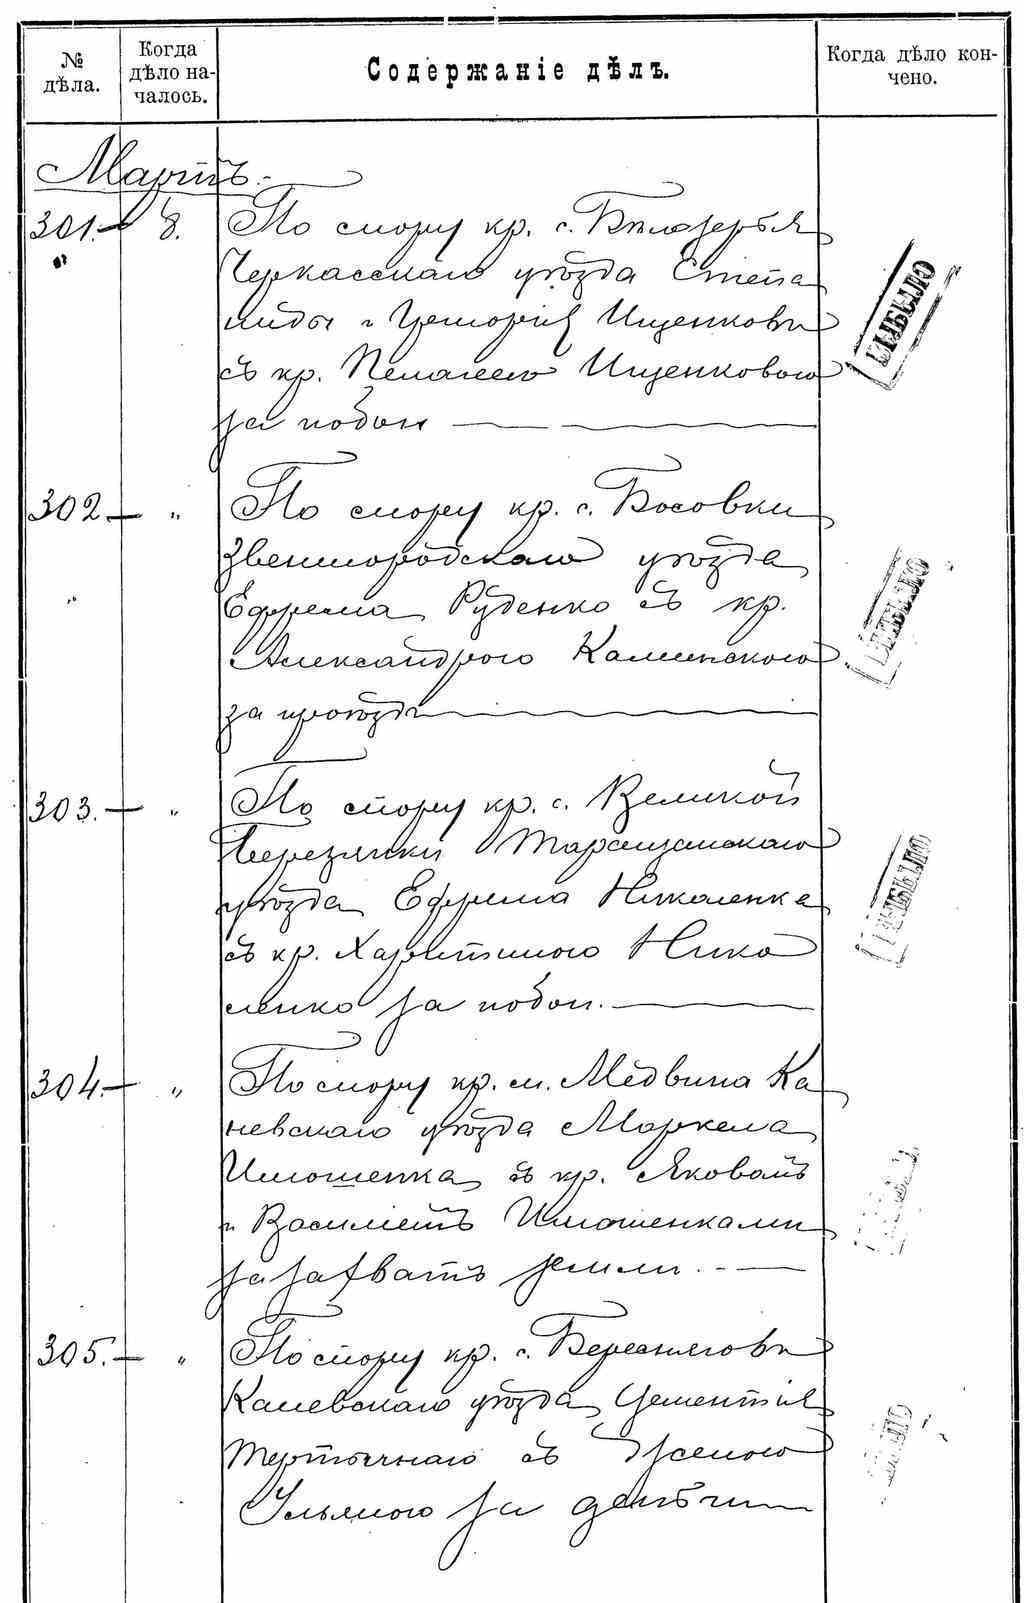 № дѣла.
Когда дѣло началось.
Содержаніе дѣлъ.
Когда дѣло кончено.
Мартъ.
301. 8. По спору кр. с. Бѣлозерья
Черкасскаго уѣзда Степа
ниды и Григорія Ищенковы
съ кр. Пелагеею Ищенковою
за побои
ВЫБЫЛО
302 — " По спору кр. с. Босовки
Звенигородскаго уѣзда
Ефрема Руденко съ кр.
Александрою Каминскою
за проѣздъ
ВЫБЫЛО
303. — " По спору кр. с. Великой
Березянки Таращанскаго
уѣзда Ефрема Николенка
съ кр. Харитиною Нико
ленко за побои.
ВЫБЫЛО
304 — " По спору кр. м. Медвина Ка
невскаго уѣзда Маркела
Илюшенка съ кр. Яковомъ
и Василіемъ Илюшенками
за захватъ земли.
305. — " По спору кр. с. Береснягов
Каневскаго уѣзда
съ женою
Ульяною за